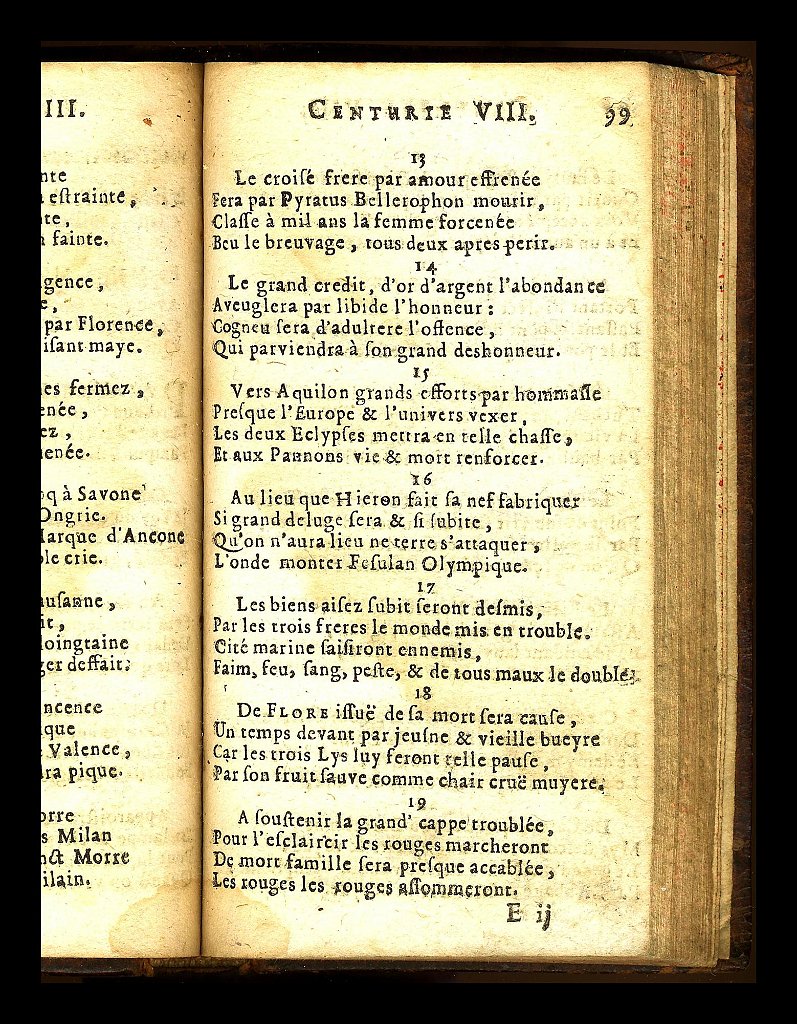 III.
nte
eſtrainte,
te,
fainte.
gence,
e,
par Florence,
iſant maye.
es fermez,
enée,
ez,
enée.
q à Savone
Ongrie.
Marque d'Ancone
ble crie.
auſanne,
it,
loingtaine
ger deffait.
ncence
que
Valence,
ra pique.
orre
s Milan
nct Morre
ilain.
CENTURIE VIII. 99
13
Le croiſé frere par amour effrenée
Fera par Pyratus Bellerophon mourir,
Claſſe à mil ans la femme forcenée
Beu le breuvage, tous deux apres perir.
14
Le grand credit, d'or d'argent l'abondance
Aveuglera par libide l'honneur :
Cogneu ſera d'adultere l'offence,
Qui parviendra à ſon grand deshonneur.
15
Vers Aquilon grands efforts par hommaſſe
Preſque l'Europe & l'univers vexer,
Les deux Eclypſes mettra en telle chaſſe,
Et aux Pannons vie & mort renforcer.
16
Au lieu que Hieron fait ſa nef fabriquer
Si grand deluge ſera & ſi ſubite,
Qu'on n'aura lieu ne terre s'attaquer,
L'onde monter Feſulan Olympique.
17
Les biens aiſez ſubit ſeront deſmis,
Par les trois freres le monde mis en trouble.
Cité marine ſaiſiront ennemis,
Faim, feu, ſang, peſte, & de tous maux le double.
18
De FLORE iſſuë de ſa mort ſera cauſe,
Un temps devant par jeuſne & vieille bueyre
Car les trois Lys luy feront telle pauſe,
Par ſon fruit ſauve comme chair cruë muyere.
19
A ſouſtenir la grand' cappe troublée,
Pour l'eſclaircir les rouges marcheront
De mort famille ſera preſque accablée,
Les rouges les rouges aſſommeront.
E ij